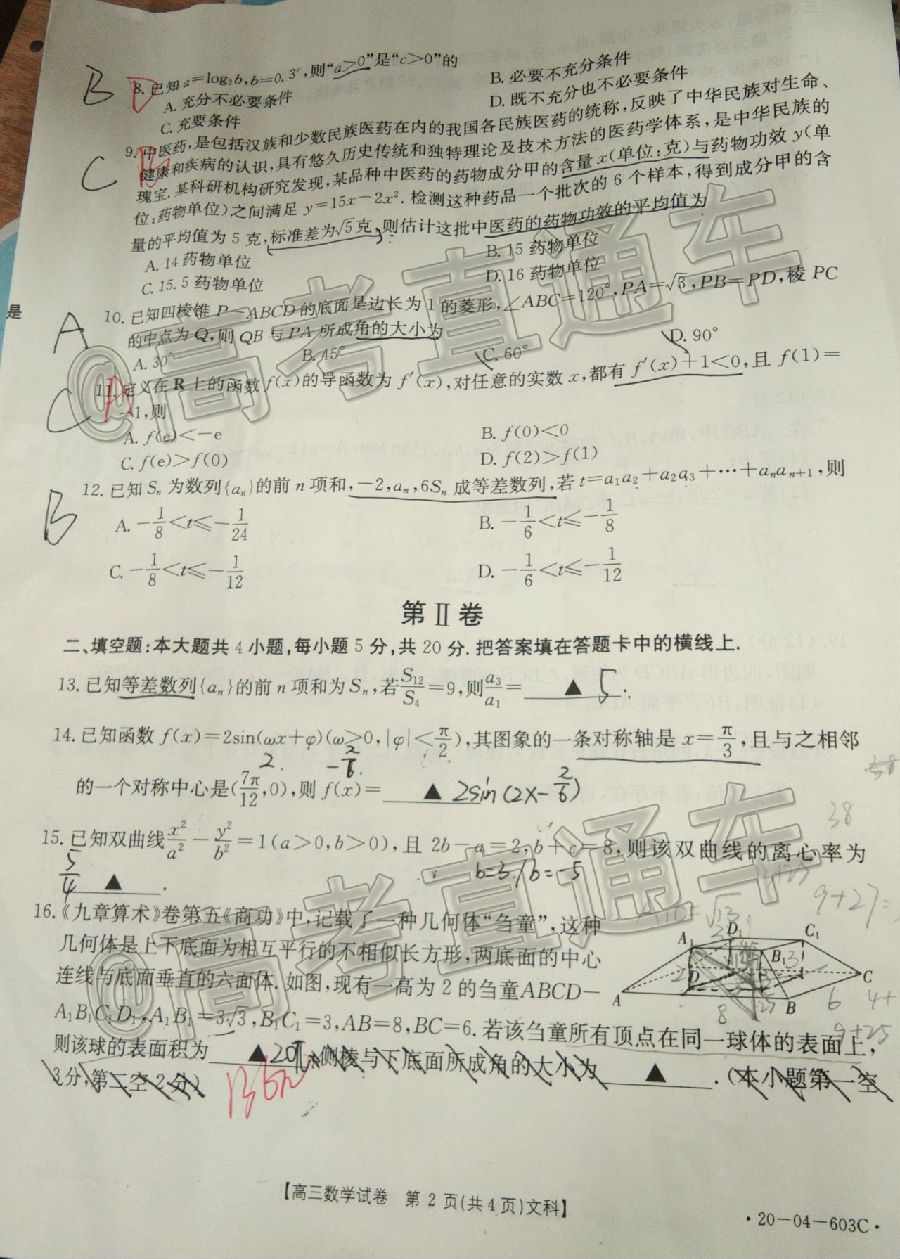 B D 8. 已知a=log₃b,b=0.3ᶜ,则“a>0”是“c>0”的
A. 充分不必要条件 B. 必要不充分条件
C. 充要条件 D. 既不充分也不必要条件
C B 9. 中医药,是包括汉族和少数民族医药在内的我国各民族医药的统称,反映了中华民族对生命、
健康和疾病的认识,具有悠久历史传统和独特理论及技术方法的医药学体系,是中华民族的
瑰宝.某科研机构研究发现,某品种中医药的药物成分甲的含量x(单位:克)与药物功效y(单
位:药物单位)之间满足y=15x−2x².检测这种药品一个批次的6个样本,得到成分甲的含
量的平均值为5克,标准差为√5克,则估计这批中医药的药物功效的平均值为
A. 14药物单位 B. 15药物单位
C. 15.5药物单位 D. 16药物单位
是
A 10. 已知四棱锥P−ABCD的底面是边长为1的菱形,∠ABC=120°,PA=√3,PB=PD,棱PC
的中点为Q,则QB与PA所成角的大小为
A. 30° B. 45° C. 60° D. 90°
C A 11. 定义在R上的函数f(x)的导函数为f′(x),对任意的实数x,都有f′(x)+1<0,且f(1)=
−1,则
A. f(e)<−e B. f(0)<0
C. f(e)>f(0) D. f(2)>f(1)
B 12. 已知Sₙ为数列{aₙ}的前n项和,−2,aₙ,6Sₙ成等差数列,若t=a₁a₂+a₂a₃+⋯+aₙaₙ₊₁,则
A. −1/8<t≤−1/24 B. −1/6<t≤−1/8
C. −1/8<t≤−1/12 D. −1/6<t≤−1/12
第Ⅱ卷
二、填空题:本大题共4小题,每小题5分,共20分.把答案填在答题卡中的横线上.
13. 已知等差数列{aₙ}的前n项和为Sₙ,若S₁₂/S₄=9,则a₃/a₁= ▲ 5 .
14. 已知函数f(x)=2sin(ωx+φ)(ω>0,|φ|<π/2),其图象的一条对称轴是x=π/3,且与之相邻
2
的一个对称中心是(7π/12,0),则f(x)= ▲ 2sin(2x−π/6)
38
15. 已知双曲线x²/a²−y²/b²=1(a>0,b>0),且2b−a=2,b+c=8,则该双曲线的离心率为
5/4 ▲ .
16. 《九章算术》卷第五《商功》中,记载了一种几何体“刍童”,这种
9+27=
几何体是上下底面为相互平行的不相似长方形,两底面的中心
连线与底面垂直的六面体.如图,现有一高为2的刍童ABCD−
A₁B₁C₁D₁,A₁B₁=3√3,B₁C₁=3,AB=8,BC=6.若该刍童所有顶点在同一球体的表面上,
A₁ D₁ C₁ B₁ D A B C
8 6 4+
9+25
则该球的表面积为 ▲ 20π ,侧棱与下底面所成角的大小为 ▲ .(本小题第一空
3分,第二空2分)
【高三数学试卷 第2页(共4页)文科】
·20−04−603C·
@高考直通车
@高考直通车